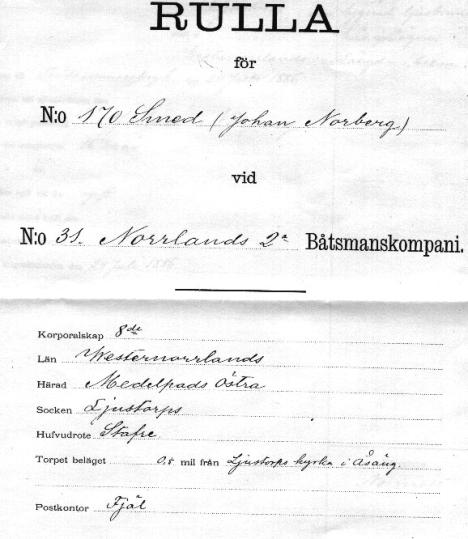 RULLA
för
N:o 170 Smed (Johan Norberg)
vid
N:o 31. Norrlands 2a Båtsmanskompani.
Korporalskap 8de
Län Westernorrlands
Härad Medelpads Östra
Socken Ljustorps
Hufvudrote Stafre
Torpet beläget 0,8 mil från Ljustorps kyrka i Åsäng.
Postkontor Fjäl